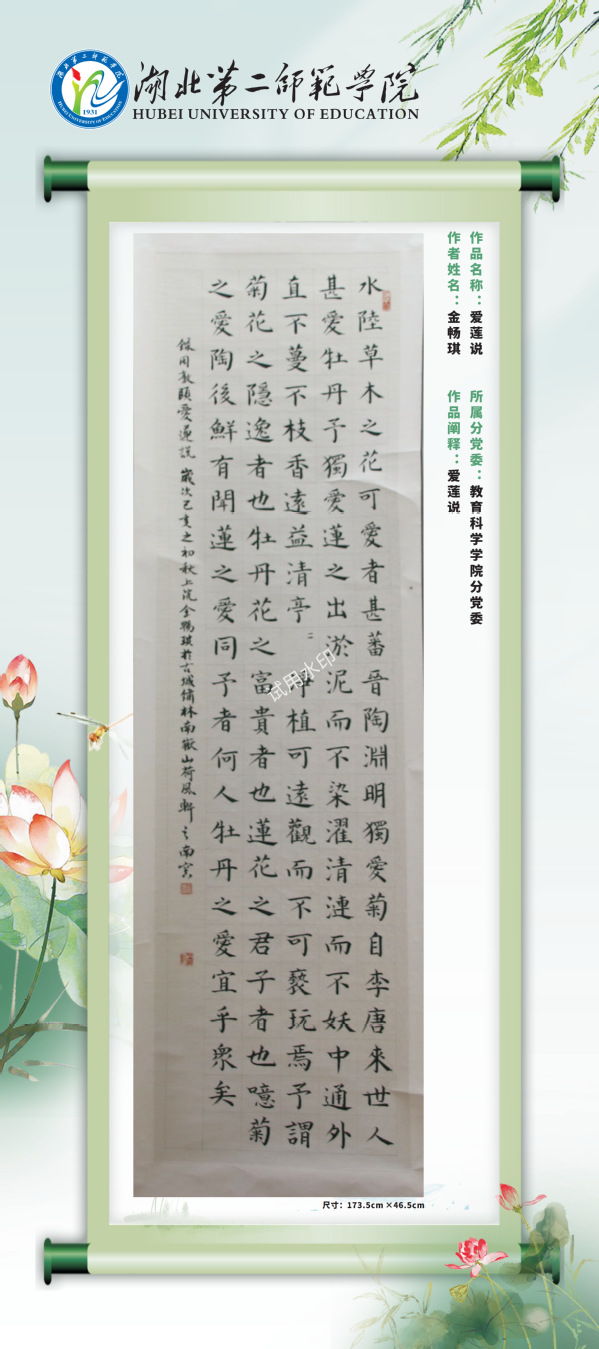 湖北第二师範学院
HUBEI UNIVERSITY OF EDUCATION
1931
作品名称：爱莲说
作者姓名：金畅琪
所属分党委：教育科学学院分党委
作品阐释：爱莲说
水陸草木之花可愛者甚蕃晉陶淵明獨愛菊自李唐來世人
甚愛牡丹予獨愛蓮之出淤泥而不染濯清漣而不妖中通外
直不蔓不枝香遠益清亭〻淨植可遠觀而不可褻玩焉予謂
菊花之隱逸者也牡丹花之富貴者也蓮花之君子者也噫菊
之愛陶後鮮有聞蓮之愛同予者何人牡丹之愛宜乎衆矣
錄周敦頤愛蓮說 歲次己亥之初秋上浣金暢琪於古城林南嶽山荷風軒之南窗
试用水印
尺寸：173.5cm×46.5cm